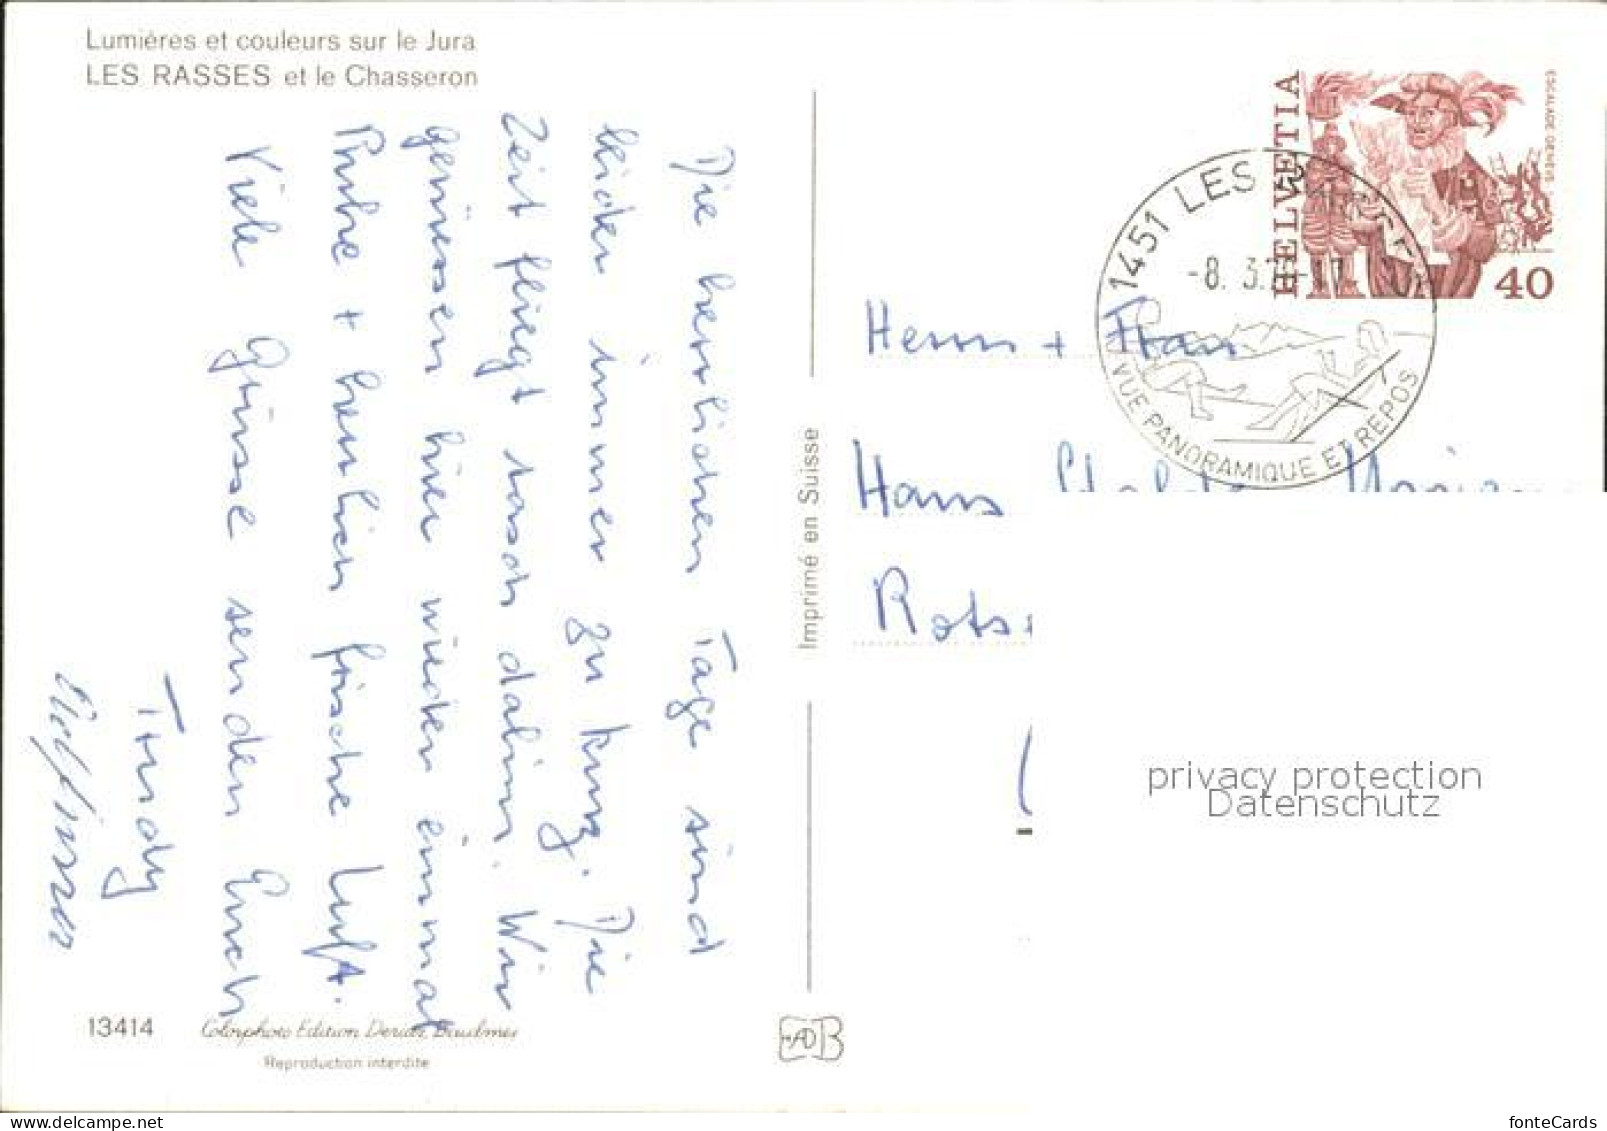 Lumières et couleurs sur le Jura
LES RASSES et le Chasseron
Die herrlichen Tage sind
leider immer zu kurz. Die
Zeit fliegt rasch dahin. Wir
geniessen hier wieder einmal
Ruhe + herrlich frische Luft.
Viele Grüsse senden Euch
Trudy
13414
Colorphoto Edition Deriaz, Baulmes
Reproduction interdite
Imprimé en Suisse
HELVETIA
ESCALADE GENEVE
40
1451 LES
-8. 3.
VUE PANORAMIQUE ET REPOS
Herrn + Frau
Hans
privacy protection
Datenschutz
fonteCards